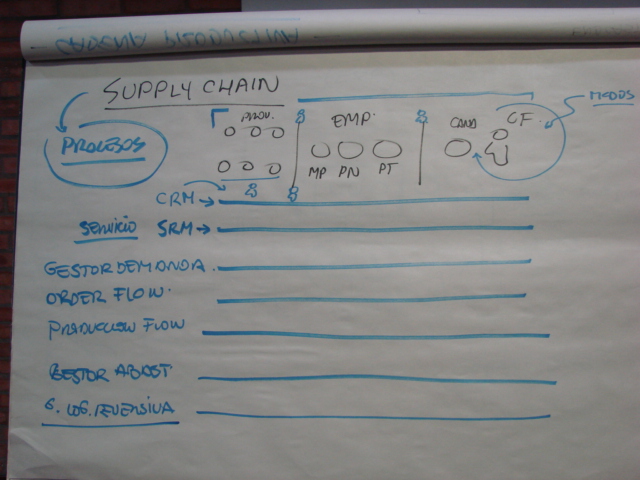 SUPPLY CHAIN
PROCESOS
PROV.
EMP.
CANAL
CF.
MEDOS
MP PN PT
CRM
SERVICIO SRM
GESTOR DEMANDA.
ORDER FLOW.
PRODUCCION FLOW
GESTOR ABAST.
G. LOG. REVERSIVA